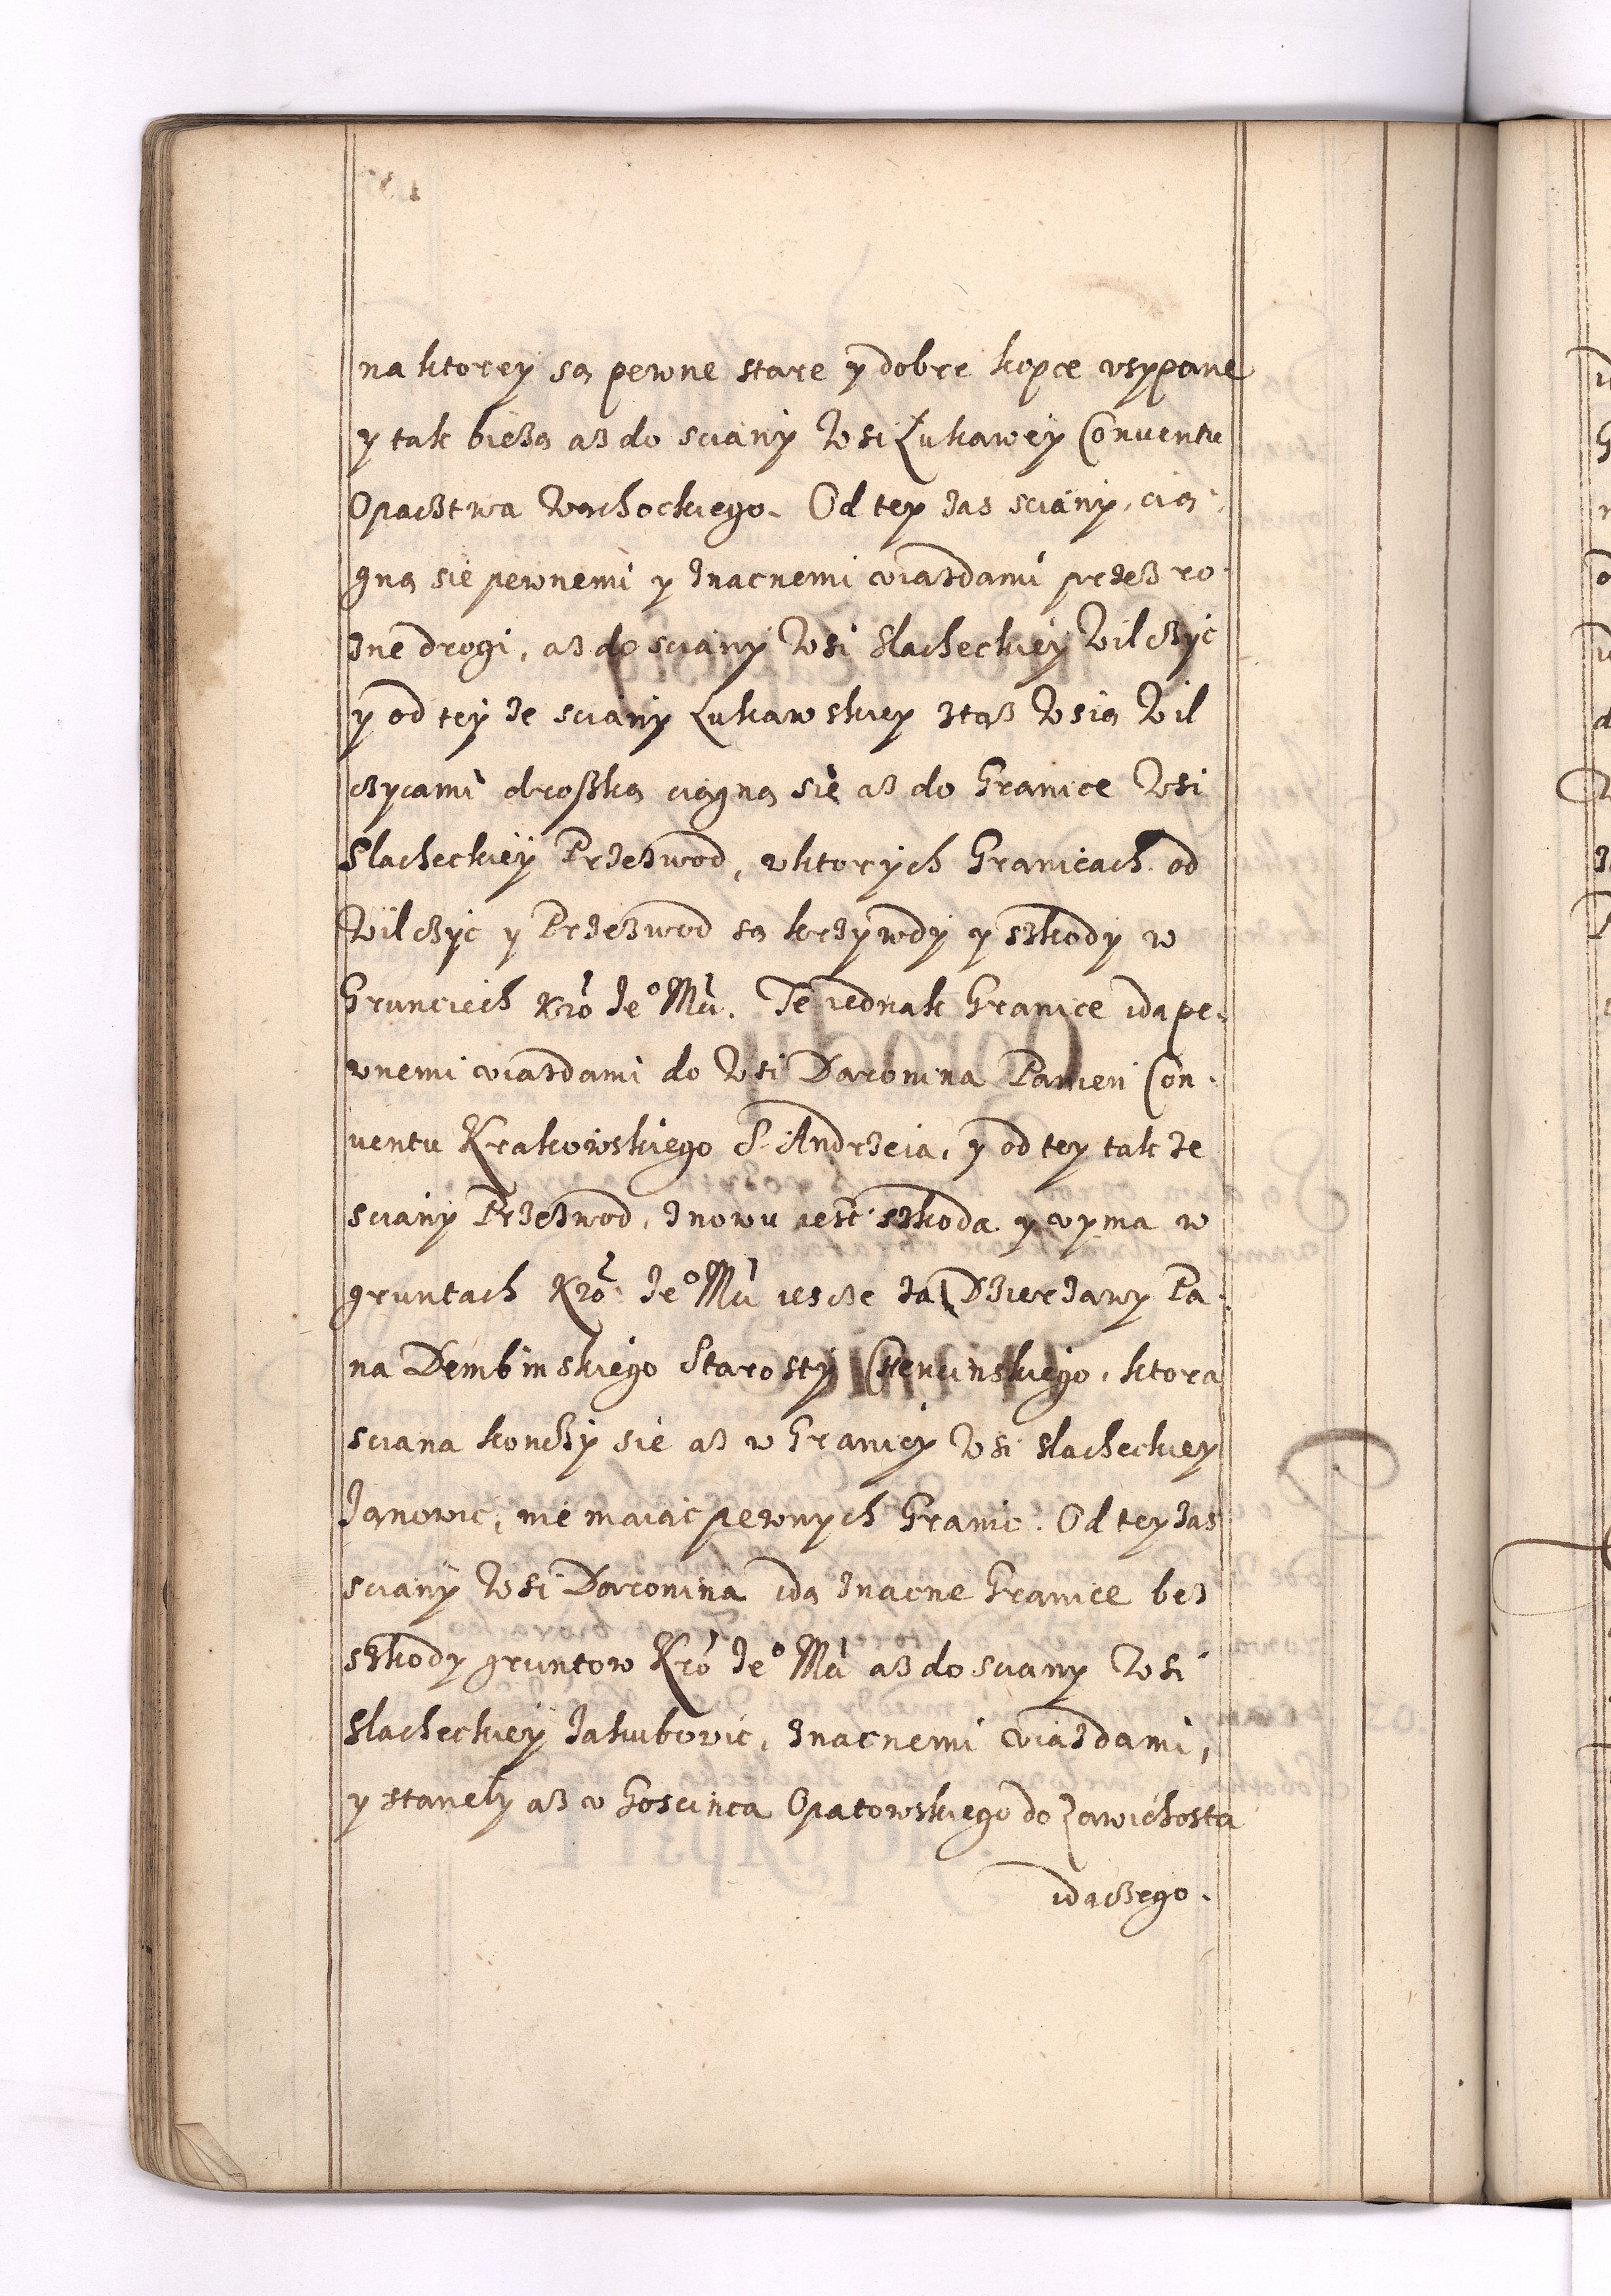 na ktorey są pewne stare y dobre kopce vsypane
y tak bießą aß do sciany Wsi Łukawey Conuentu
Opaćstwa Wachockiego. Od tey zas sciany, cią-
gną sie pewnemi y znacnemi viazdami przeß ro-
zne drogi, aß do sciany Wsi Slacheckiey Wilczyc
y od tey ze sciany Łukawskiey ztąß Wsią Wil
czycami droßką ciągną sie aß do Granice Wsi
Slacheckiey Przezwod, w ktorych Granicach od
Wilczyc y Przezwod są krzywdy y szkody w
Grunciech Kro Je° Mci. Te iednak Granice idą pe-
wnemi viazdami do Wsi Daronina Panien Con-
uentu Krakowskiego S. Andrzeia, y od tey tak ze
sciany Przezwod, znowu iest szkoda y vyma w
gruntach Kro: Je° Mci iescze za Dzierzawy Pa-
na Dembinskiego Starosty Chencinskiego, ktora
sciana konczy sie aß v Granicy Wsi slacheckiey
Janowic, nie maiąc pewnych Granic. Od tey zas
sciany Wsi Daronina idą znacne Granice bez
szkody gruntow Kro Je° Mci aß do sciany Wsi
Slacheckiey Jakubowic, znacnemi viazdami,
y stanely aß v Goscinca Opatowskiego do Zawichosta
idaczego.